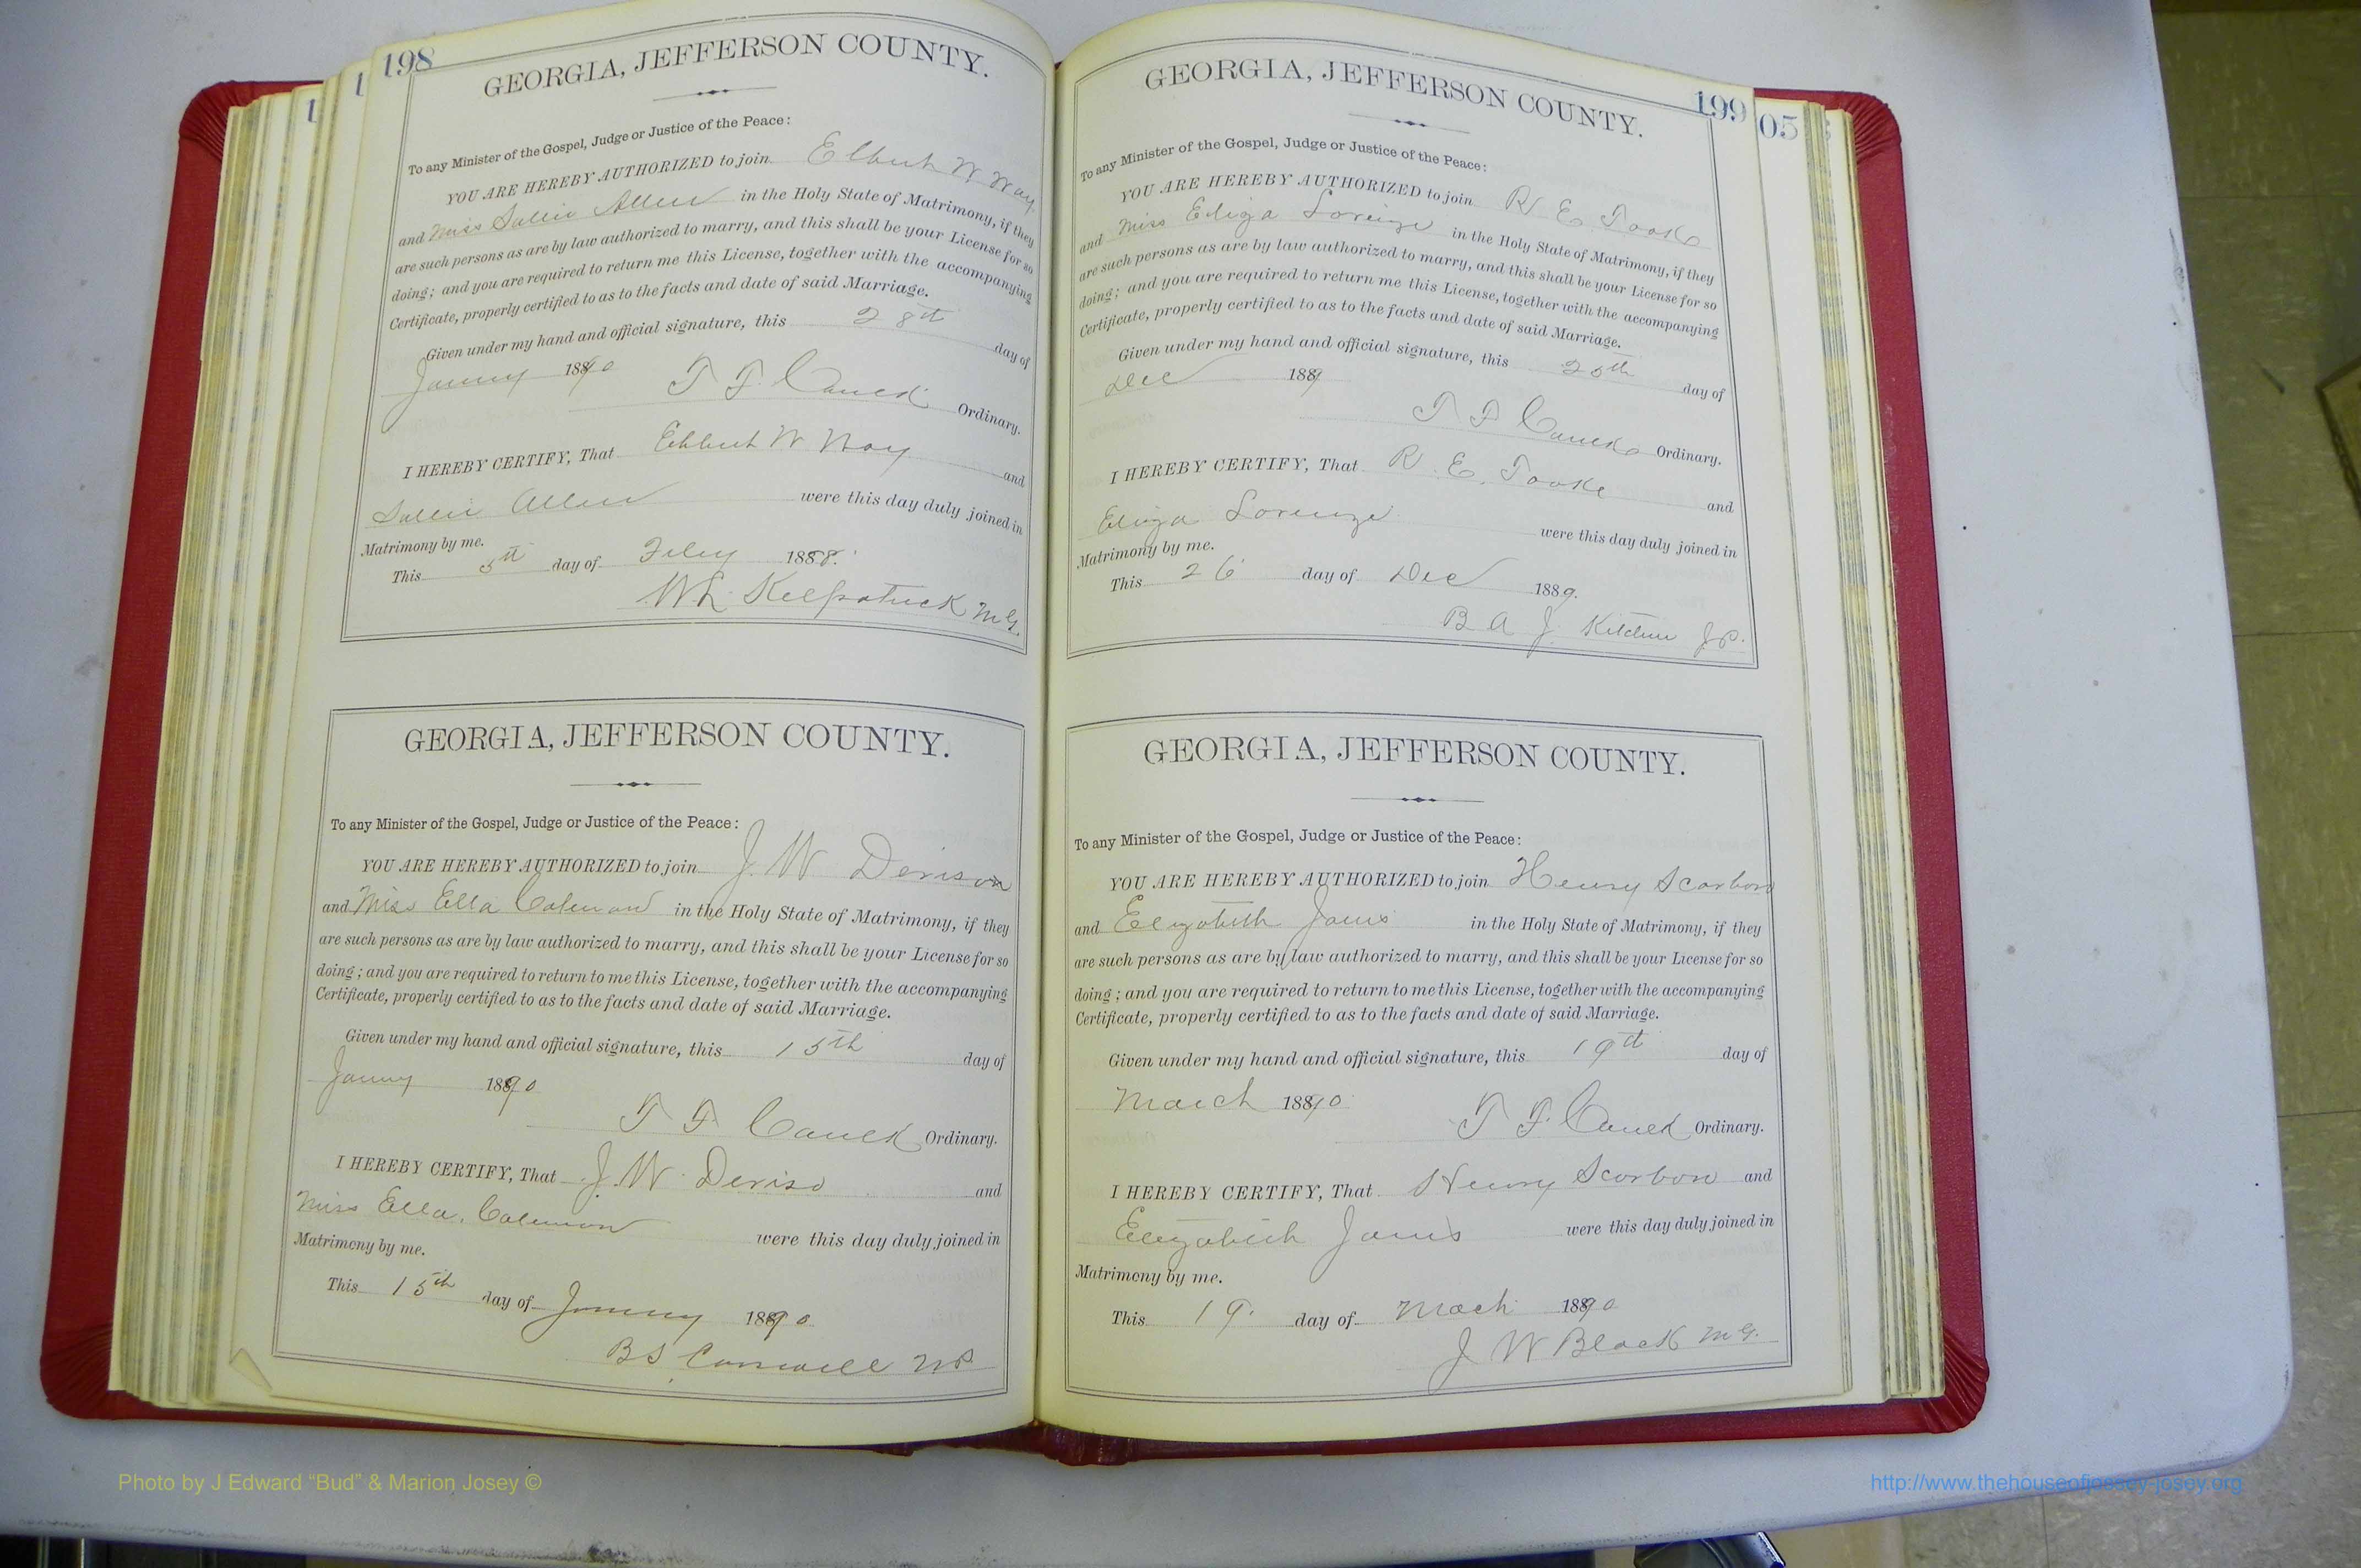 198
GEORGIA, JEFFERSON COUNTY.
To any Minister of the Gospel, Judge or Justice of the Peace:
YOU ARE HEREBY AUTHORIZED to join Elbert W Way
and Miss Sallie Allen in the Holy State of Matrimony, if they
are such persons as are by law authorized to marry, and this shall be your License for so
doing; and you are required to return me this License, together with the accompanying
Certificate, properly certified to as to the facts and date of said Marriage.
Given under my hand and official signature, this 28th day of
1890
T F Ordinary.
I HEREBY CERTIFY, That Elbert W Way and
Sallie Allen were this day duly joined in
Matrimony by me.
This 5th day of Feby 1888.
W L Kilpatrick M G.
GEORGIA, JEFFERSON COUNTY.
To any Minister of the Gospel, Judge or Justice of the Peace:
YOU ARE HEREBY AUTHORIZED to join J. W Denison
and Miss Ella Coleman in the Holy State of Matrimony, if they
are such persons as are by law authorized to marry, and this shall be your License for so
doing; and you are required to return to me this License, together with the accompanying
Certificate, properly certified to as to the facts and date of said Marriage.
Given under my hand and official signature, this 15th day of
1890
T F Ordinary.
I HEREBY CERTIFY, That J. W. Deniso and
Miss Ella Coleman were this day duly joined in
Matrimony by me.
This 15th day of 1890
B S NP
199
05
GEORGIA, JEFFERSON COUNTY.
To any Minister of the Gospel, Judge or Justice of the Peace:
YOU ARE HEREBY AUTHORIZED to join R E Tooke
and Miss Eliza Lorenze in the Holy State of Matrimony, if they
are such persons as are by law authorized to marry, and this shall be your License for so
doing; and you are required to return me this License, together with the accompanying
Certificate, properly certified to as to the facts and date of said Marriage.
Given under my hand and official signature, this 25th day of
Dec 1889
T F Ordinary.
I HEREBY CERTIFY, That R. E. Tooke and
Eliza Lorenze were this day duly joined in
Matrimony by me.
This 26 day of Dec 1889.
B A J JP.
GEORGIA, JEFFERSON COUNTY.
To any Minister of the Gospel, Judge or Justice of the Peace:
YOU ARE HEREBY AUTHORIZED to join Henry Scarboro
and Elizabeth in the Holy State of Matrimony, if they
are such persons as are by law authorized to marry, and this shall be your License for so
doing; and you are required to return to me this License, together with the accompanying
Certificate, properly certified to as to the facts and date of said Marriage.
Given under my hand and official signature, this 19th day of
March 1890
T F. Ordinary.
I HEREBY CERTIFY, That Henry Scarboro and
Elizabeth were this day duly joined in
Matrimony by me.
This 19. day of Mach 1890
J W Black M G.
Photo by J Edward “Bud” & Marion Josey ©
http://www.thehouseofjossey-josey.org